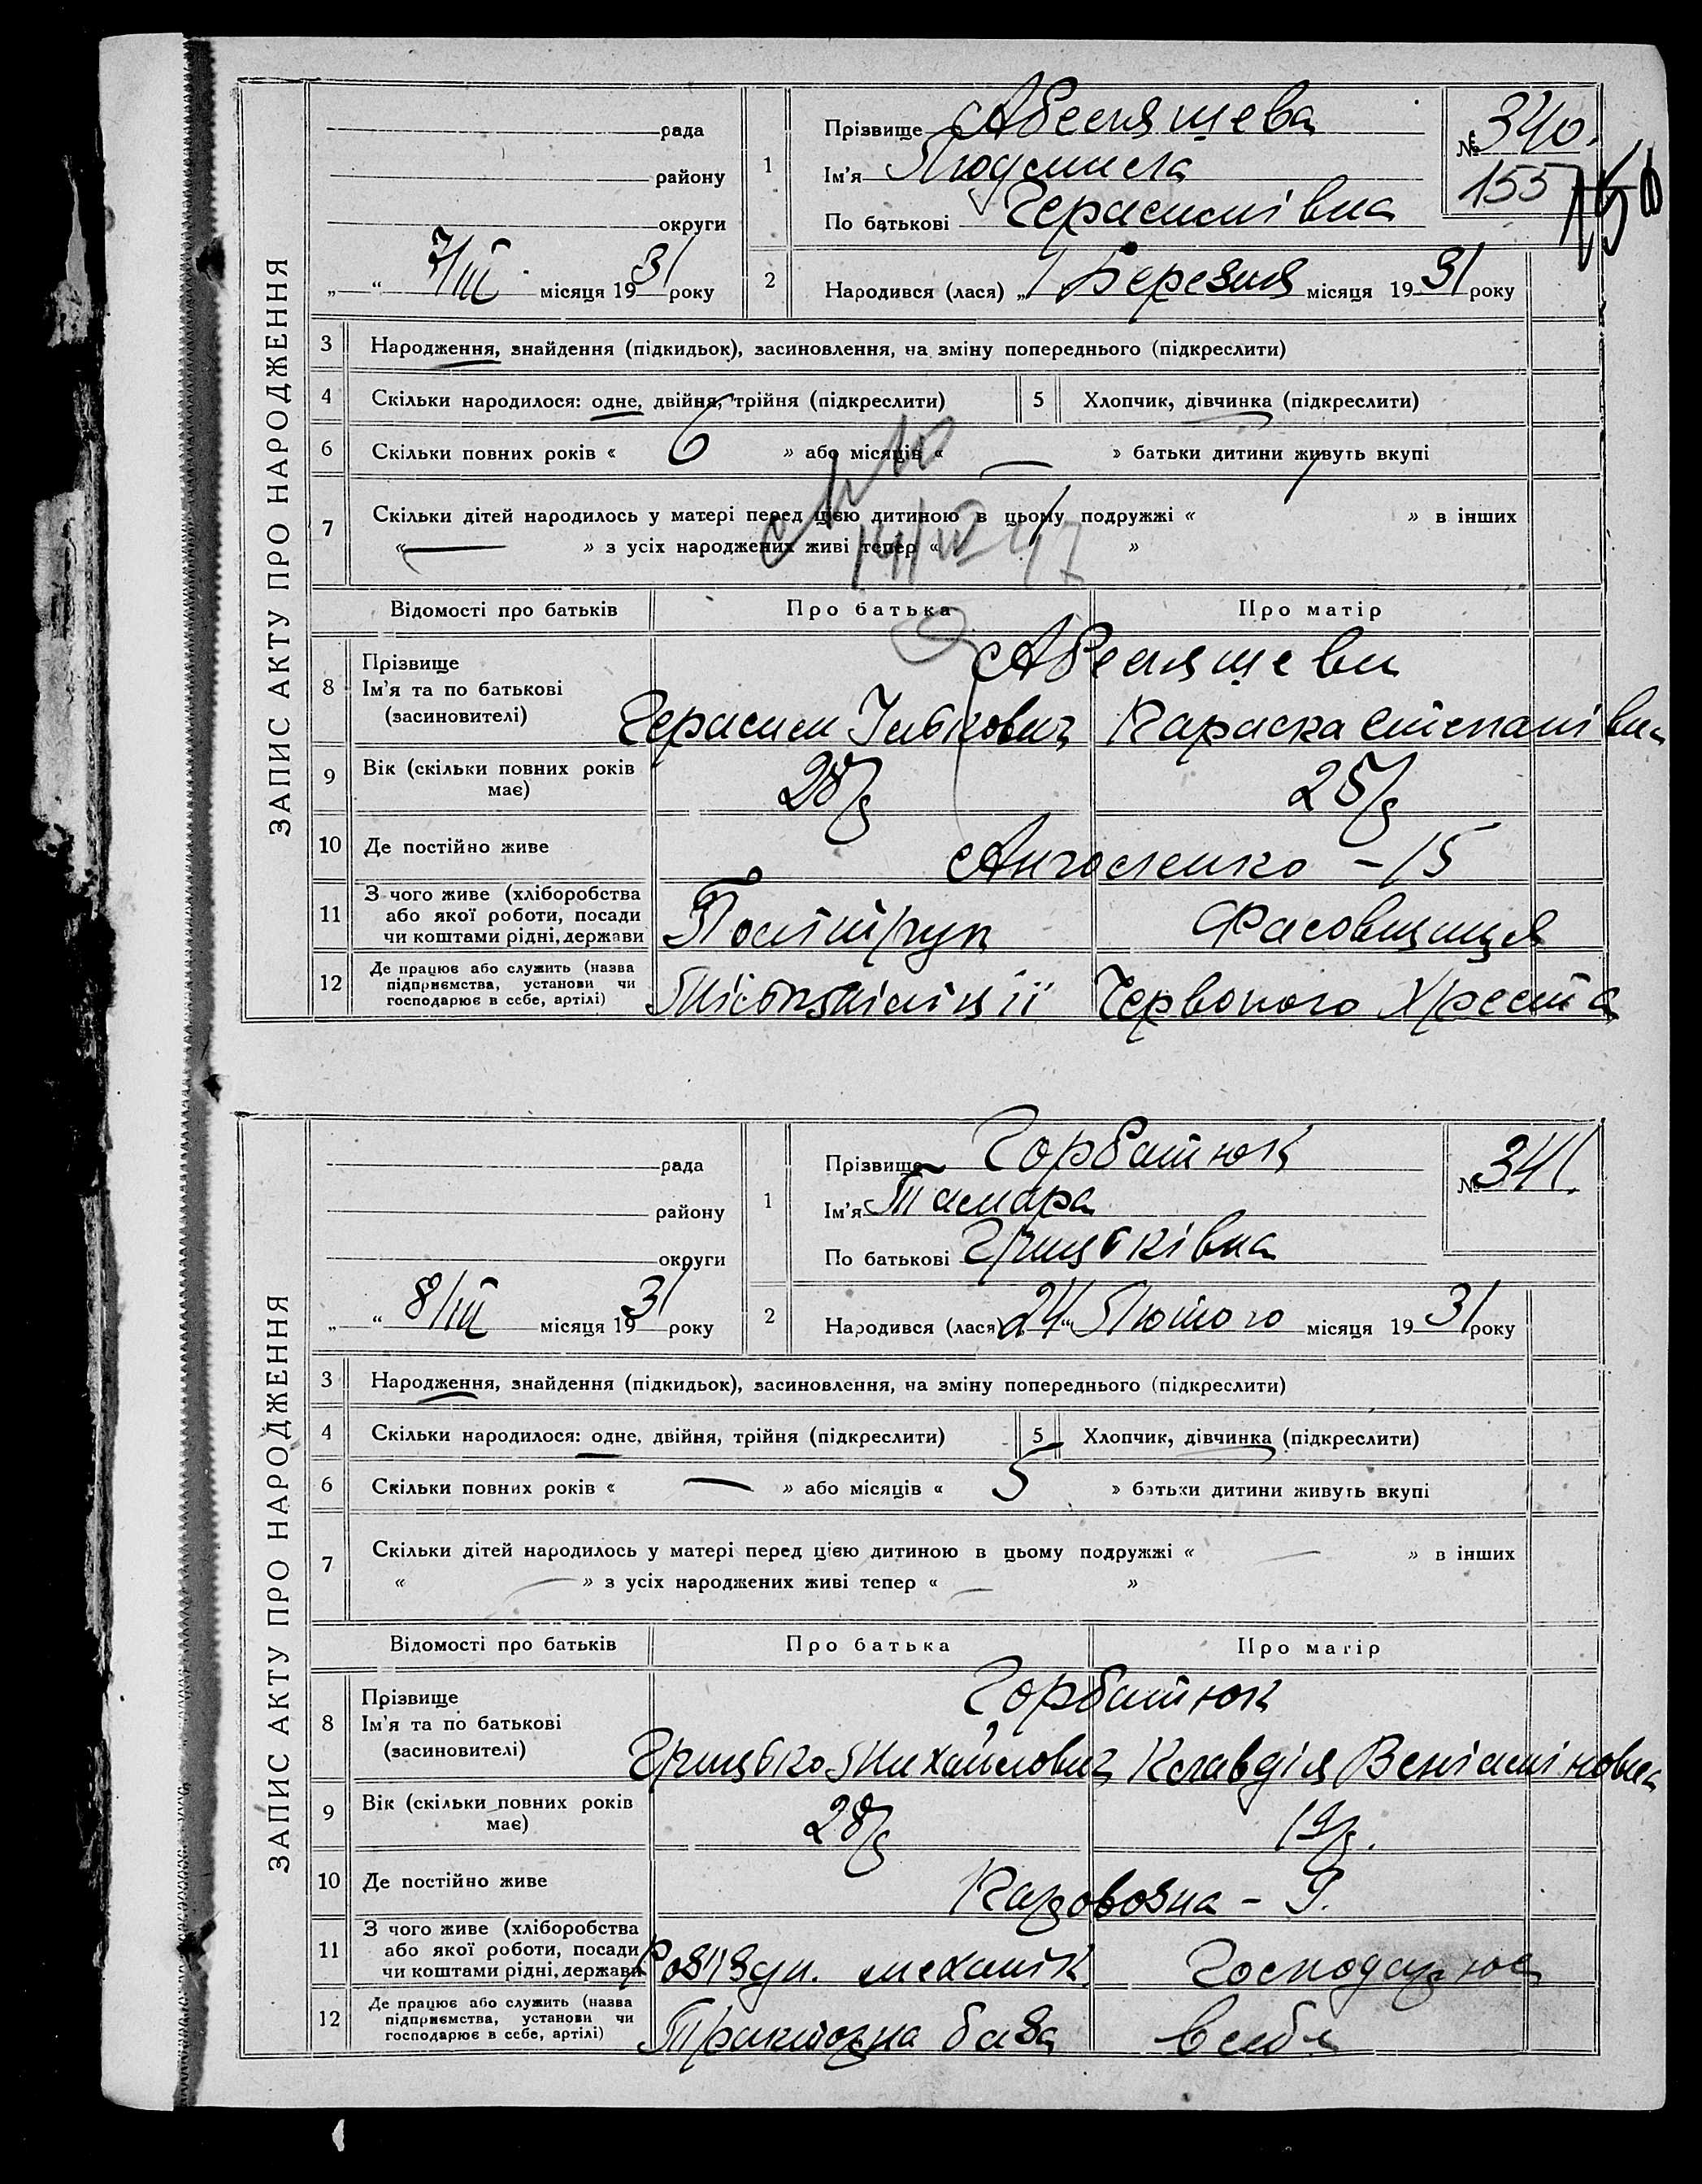 ЗАПИС АКТУ ПРО НАРОДЖЕННЯ
рада
району
округи
„ “ 7/III місяця 1931 року
1
Прізвище Абеляшева
Ім'я Людмила
По батькові Герасимівна
№ 340.
155
150
2
Народився (лася) „1 Березня місяця 1931 року
3 Народження, знайдення (підкидьок), засиновлення, на зміну попереднього (підкреслити)
4 Скільки народилося: одне, двійня, трійня (підкреслити) 5 Хлопчик, дівчинка (підкреслити)
6 Скільки повних років « 6 » або місяців « — » батьки дитини живуть вкупі
7 Скільки дітей народилось у матері перед цією дитиною в цьому подружжі « 1 » в інших
« — » з усіх народжених живі тепер « 1 »
14/IV 47
Відомості про батьків Про батька Про матір
8 Прізвище
Ім'я та по батькові
(засновителі)
Абеляшеви
Герасим Юркович Параска Степанівна
9 Вік (скільки повних років має) 28 25
10 Де постійно живе – 15
11 З чого живе (хліборобства
або якої роботи, посади
чи коштами рідні, держави
Фасовщиця
12 Де працює або служить (назва
підприємства, установи чи
господарює в себе, артілі)
Міськміліції Червоного Хреста
ЗАПИС АКТУ ПРО НАРОДЖЕННЯ
рада
району
округи
„ “ 8/III місяця 1931 року
1
Прізвище Горбатюк
Ім'я Тамара
По батькові Грицьківна
№ 341.
2
Народився (лася) 24 “ Лютого місяця 1931 року
3 Народження, знайдення (підкидьок), засиновлення, на зміну попереднього (підкреслити)
4 Скільки народилося: одне, двійня, трійня (підкреслити) 5 Хлопчик, дівчинка (підкреслити)
6 Скільки повних років « — » або місяців « 5 » батьки дитини живуть вкупі
7 Скільки дітей народилось у матері перед цією дитиною в цьому подружжі « — » в інших
« — » з усіх народжених живі тепер « — »
Відомості про батьків Про батька Про матір
8 Прізвище
Ім'я та по батькові
(засиновителі)
Горбатюк
Грицько Михайлович Клавдія Веніаміновна
9 Вік (скільки повних років має) 28 19
10 Де постійно живе – 9.
11 З чого живе (хліборобства
або якої роботи, посади
чи коштами рідні, держави
Розїздн. механік Господарює
12 Де працює або служить (назва
підприємства, установи чи
господарює в себе, артілі)
Тракторна база в себе